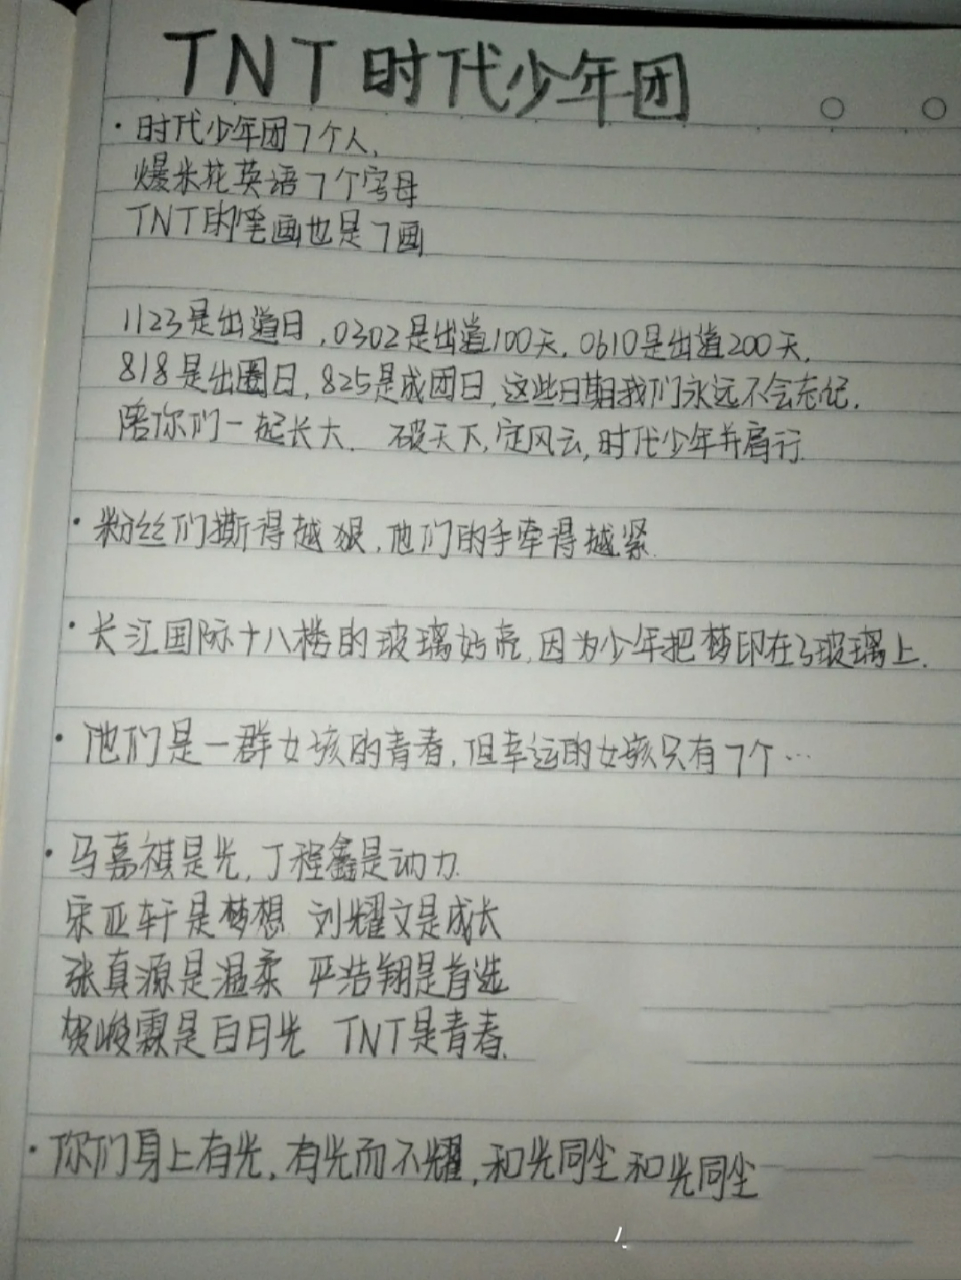 TNT时代少年团
·时代少年团7个人,
爆米花英语7个字母
TNT的笔画也是7画
1123是出道日,0302是出道100天,0610是出道200天,
818是出圈日,825是成团日,这些日期我们永远不会忘记.
陪你们一起长大. 破天下,定风云,时代少年并肩行.
·粉丝们撕得越狠,他们的手牵得越紧.
·长江国际十八楼的玻璃好亮,因为少年把梦印在了玻璃上.
·他们是一群女孩的青春,但幸运的女孩只有7个…
·马嘉祺是光,丁程鑫是动力.
宋亚轩是梦想 刘耀文是成长
张真源是温柔 严浩翔是首选
贺峻霖是白月光 TNT是青春.
·你们身上有光,有光而不耀,和光同尘和光同尘